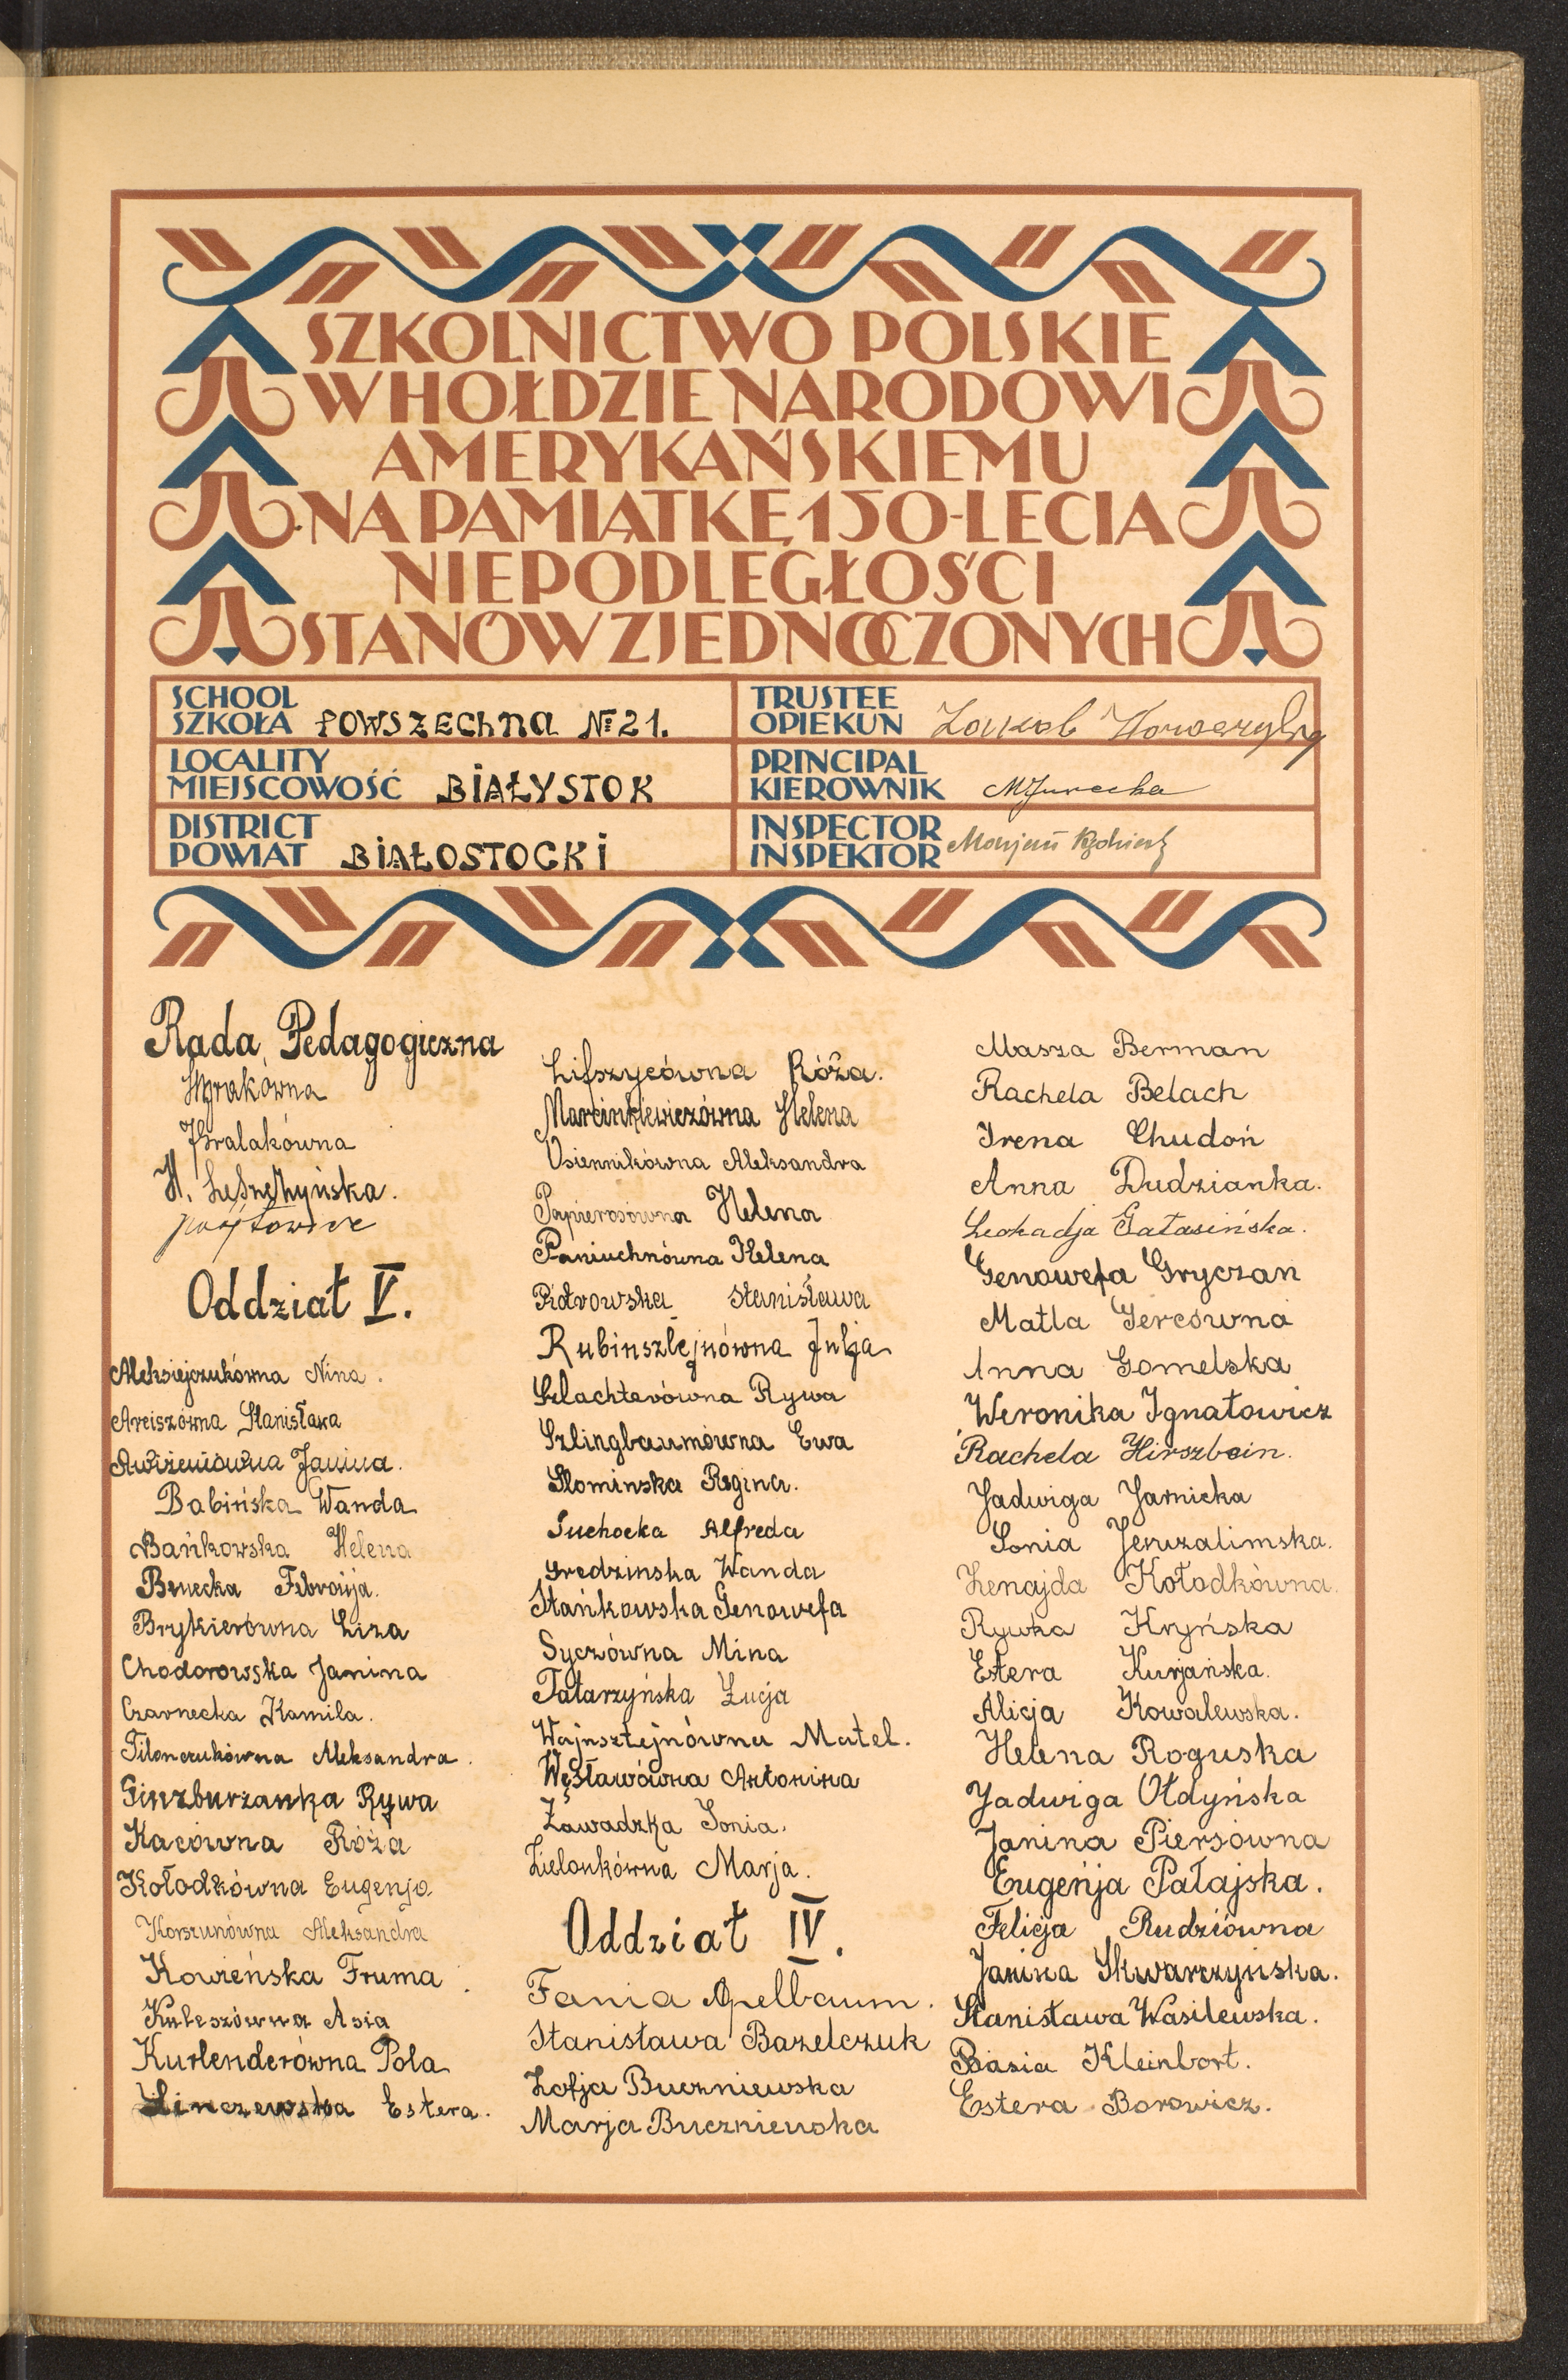 SZKOLNICTWO POLSKIE
W HOŁDZIE NARODOWI
AMERYKAŃSKIEMU
NA PAMIĄTKĘ 150-LECIA
NIEPODLEGŁOŚCI
STANÓW ZJEDNOCZONYCH
SCHOOL
SZKOŁA POWSZECHNA № 21.
LOCALITY
MIEJSCOWOŚĆ BIAŁYSTOK
DISTRICT
POWIAT BIAŁOSTOCKI
TRUSTEE
OPIEKUN
PRINCIPAL
KIEROWNIK MJurecka
INSPECTOR
INSPEKTOR Marjan
Rada Pedagogiczna
H.
Oddział V.
Aleksiejczukówna Nina.
Arciszówna Stanisława
Awiżeniówna Janina.
Babińska Wanda
Bańkowska Helena
Benecka Febronja.
Brykierówna Liza
Chodorowska Janina
Czarnecka Kamila.
Filonczukówna Aleksandra.
Ginzburżanka Rywa
Kacówna Róża
Kołodkówna Eugenja
Korszunówna Aleksandra
Kowieńska Fruma
Kuleszówna Asia
Kurlenderówna Pola
Linczewska Estera.
Lifszycówna Róża.
Marcinkiewiczówna Helena
Osiennikówna Aleksandra
Papierosówna Helena
Paniuchnówna Helena
Piotrowska Stanisława
Rubinsztejnówna Julja
Szlachterówna Rywa
Szlingbaumówna Ewa
Słominska Regina.
Suchocka Alfreda
Sredzinska Wanda
Stańkowska Genowefa
Syczówna Mina
Tatarzyńska Łucja
Wajnsztejnówna Matel.
Węsławówna Antonina
Zawadzka Sonia.
Zielonkówna Marja.
Oddział IV.
Fania Apelbaum.
Stanisława Bazelczuk
Zofja Buczniewska
Marja Buczniewska
Masza Berman
Rachela Belach
Irena Chudoń
Anna Dudzianka.
Leokadja Gatasińska.
Genowefa Gryczan
Matla Gercówna
Anna Gomelska
Weronika Ignatowicz
Rachela Hirszbein.
Jadwiga Jarnicka
Sonia Jeruzalimska.
Zenajda Kołodkówna.
Rywka Kryńska
Estera Kurjańska.
Alicja Kowalewska.
Helena Roguska
Jadwiga Ołdyńska
Janina Piersówna
Eugenja Pałajska.
Felicja Rudziówna
Janina Skwarzyńska.
Stanisława Wasilewska.
Basia Kleinbort.
Estera Borowicz.